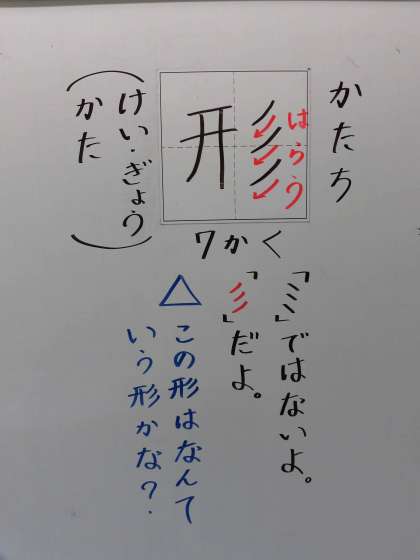 かたち
形
はらう
けい・ぎょう
かた
7かく
「ミ」ではないよ。
「彡」だよ。
△この形はなんて
いう形かな？